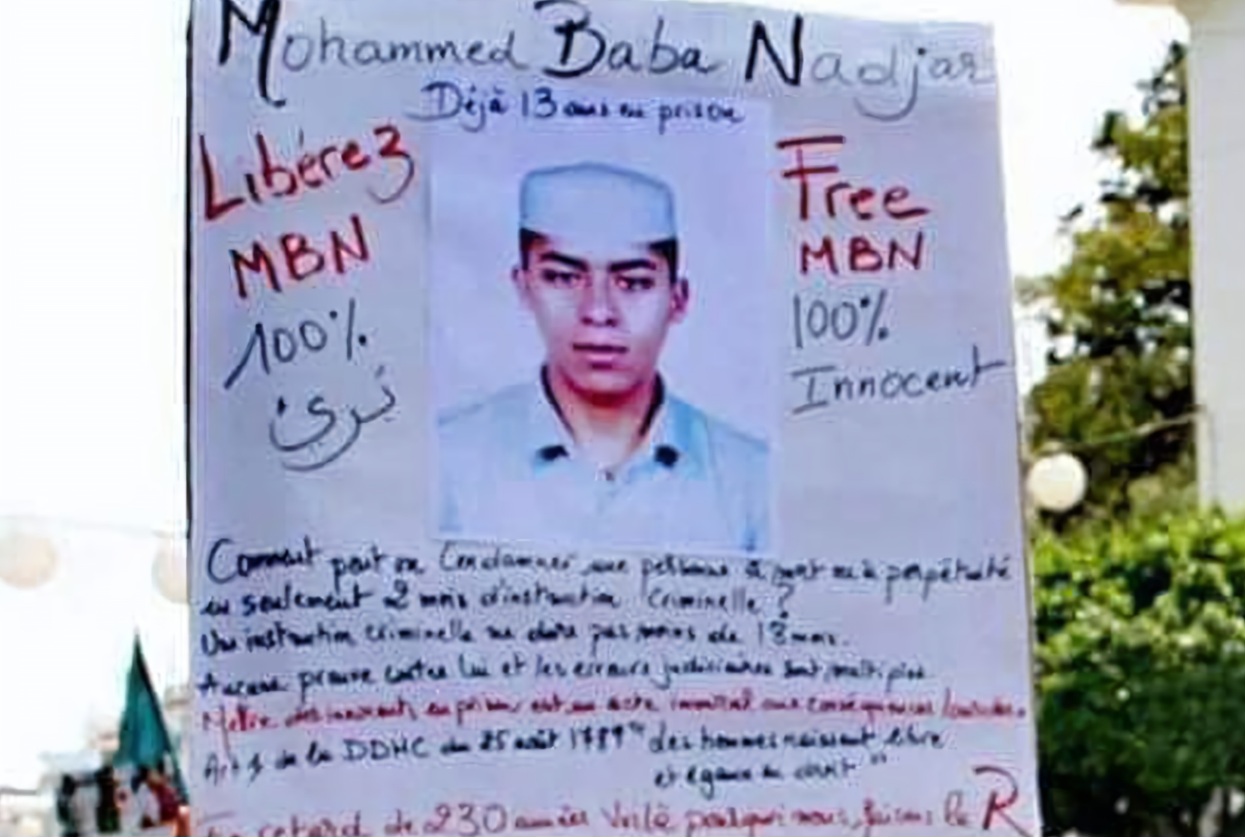 Mohammed Baba Nadjar
Déjà 13 ans en prison
Libérez
MBN
100%
بريئ
Free
MBN
100%
Innocent
Comment peut on Condamner une personne à mort ou à perpétuité
en seulement 2 mois d'instruction Criminelle ?
Une instruction criminelle ne dure pas moins de 18 mois.
Aucune preuve contre lui et les erreurs judiciaires sont multiples
Mettre des innocents en prison est un acte immoral aux conséquences lourdes.
Art 1 de la DDHC du 25 août 1789 "des hommes naissent libre
et égaux en droit"
retard de 230 années Voilà pourquoi nous faisons la R